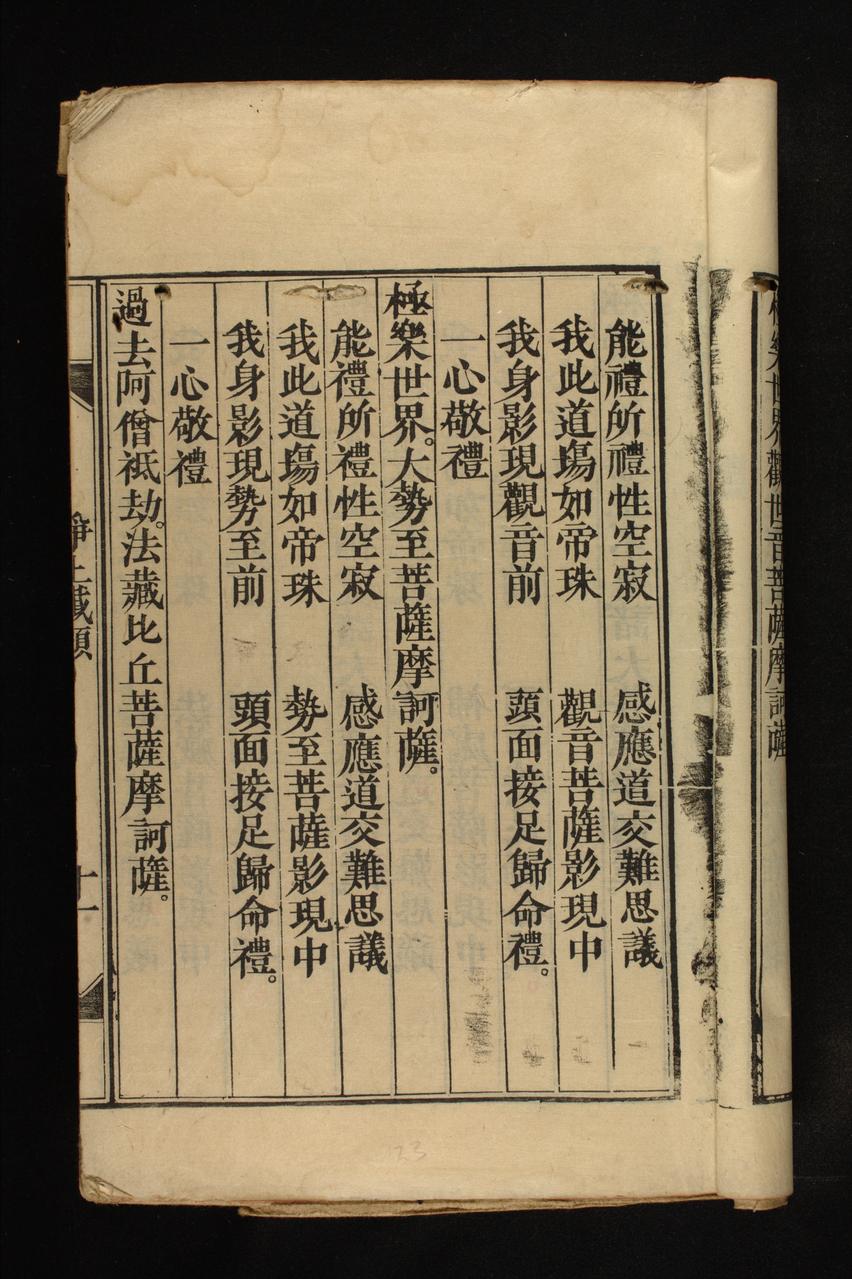 極樂世界觀世音菩薩摩訶薩
能禮所禮性空寂 感應道交難思議
我此道塲如帝珠 觀音菩薩影現中
我身影現觀音前 頭面接足歸命禮。
一心敬禮
極樂世界。大勢至菩薩摩訶薩。
能禮所禮性空寂 感應道交難思議
我此道塲如帝珠 勢至菩薩影現中
我身影現勢至前 頭面接足歸命禮。
一心敬禮
過去阿僧祇劫。法藏比丘菩薩摩訶薩。
淨土懺願
十一
23